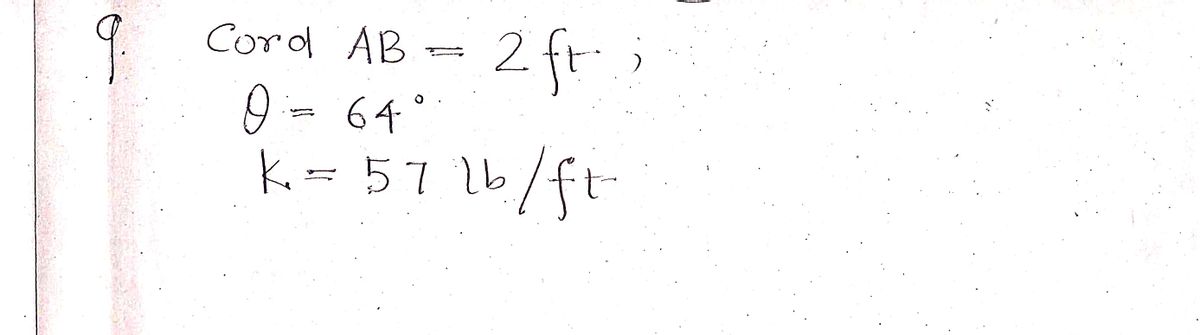 9. Cord AB = 2 ft ;
θ = 64°
k = 57 lb/ft